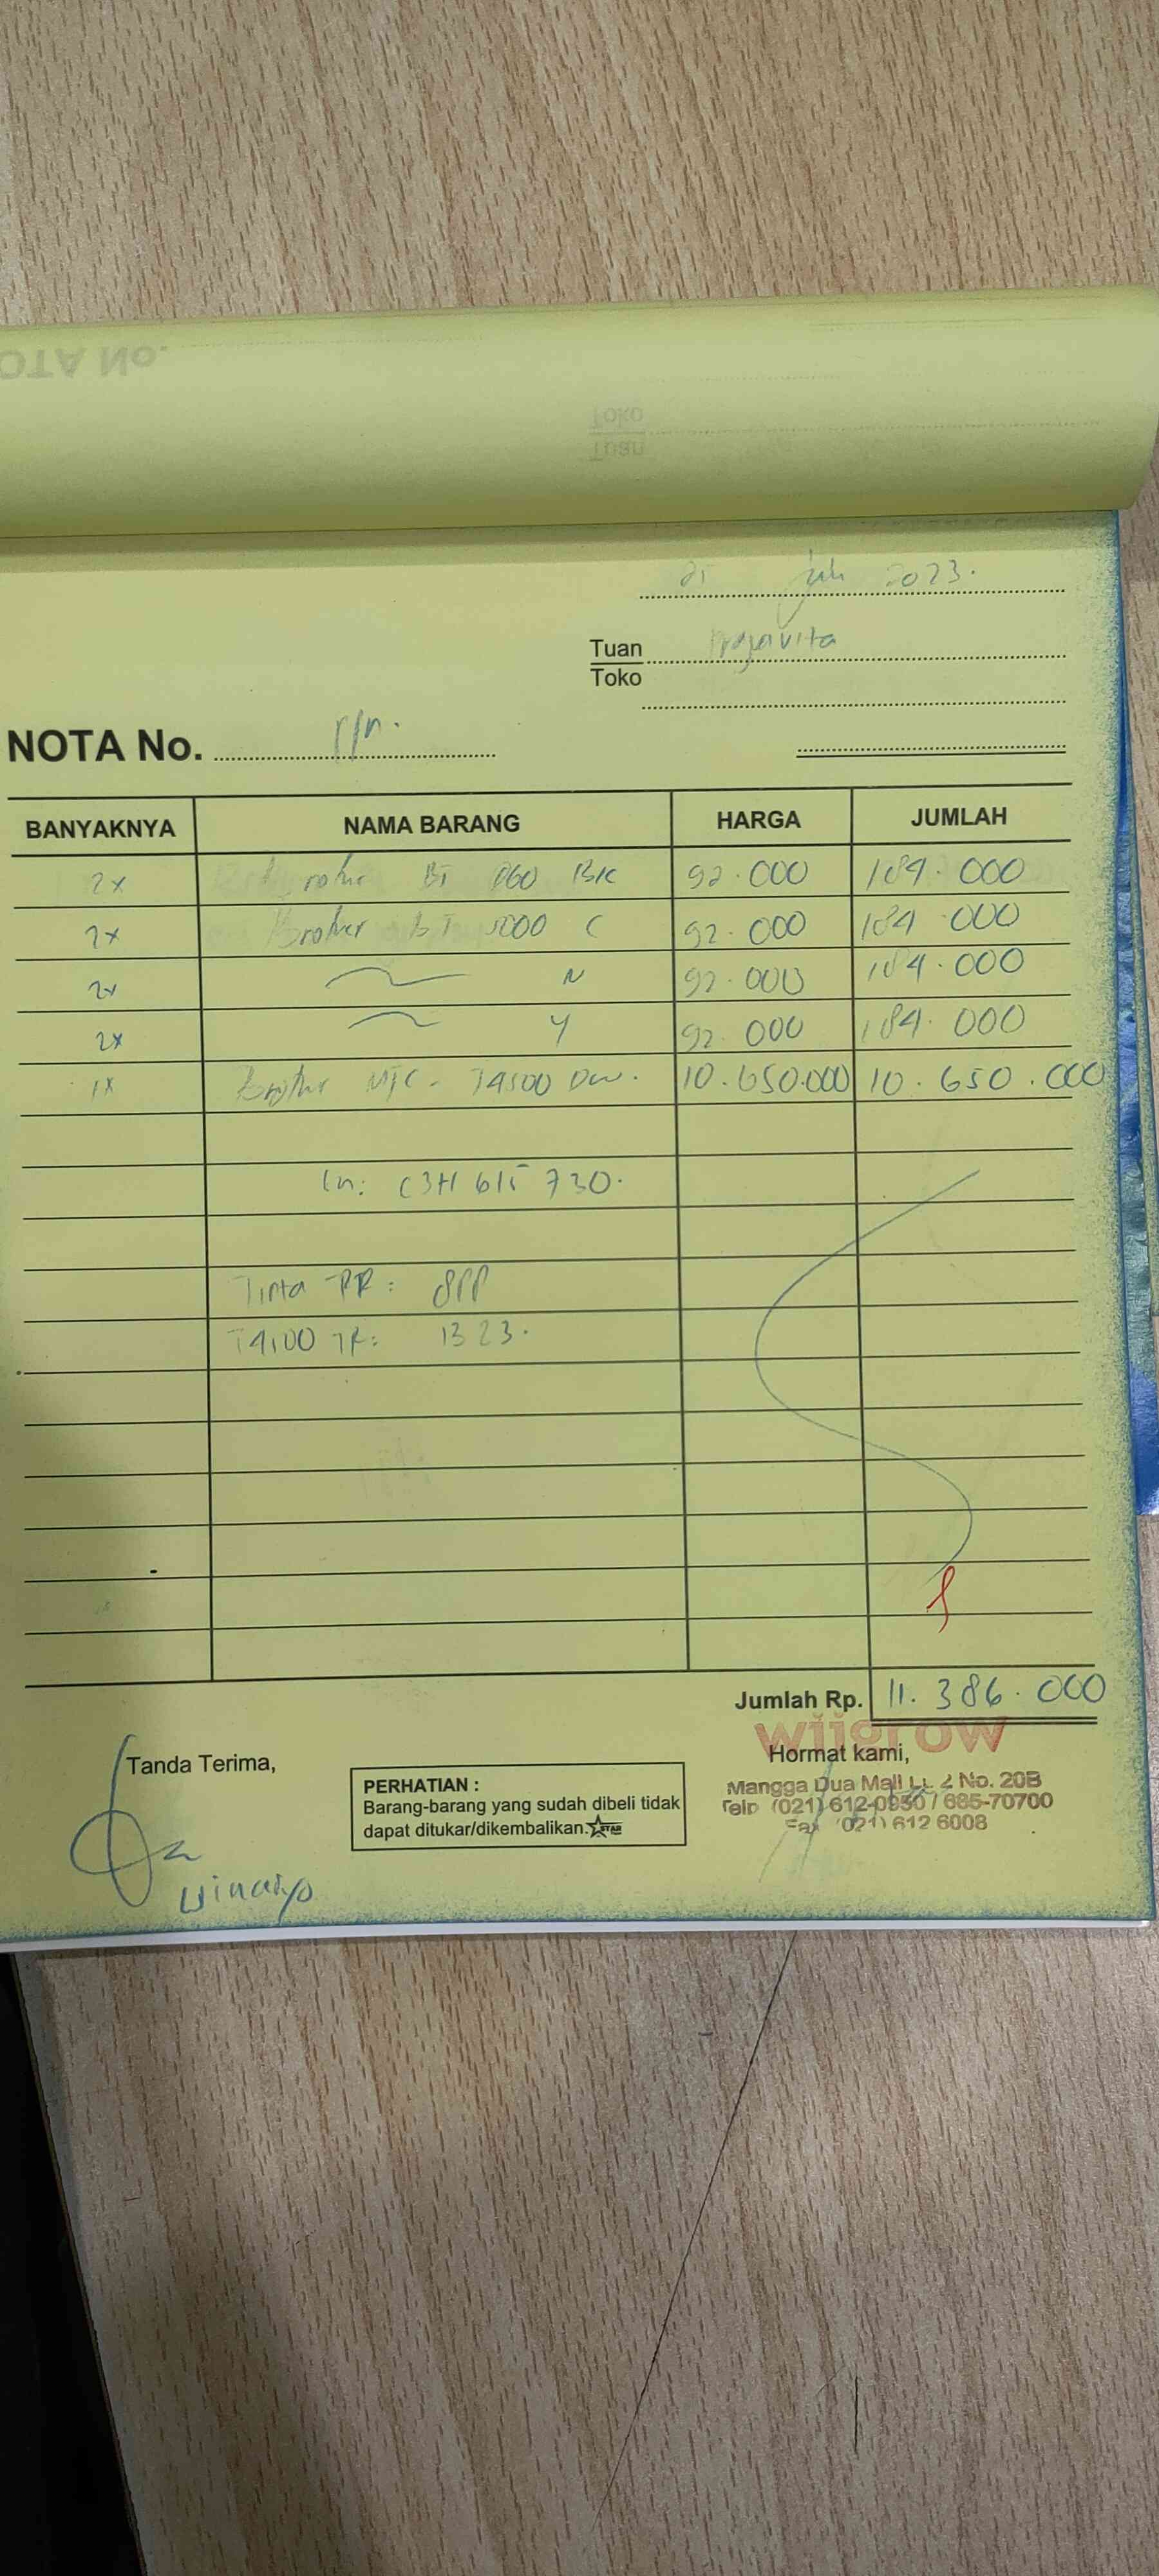 OTA No.
Toko
Tuan
juli 2023.
Tuan
Toko
NOTA No.
BANYAKNYA NAMA BARANG HARGA JUMLAH
2x BT D60 BK 92.000 184.000
2x Brother BT 5000 C 92.000 184.000
2x 92.000 184.000
2x Y 92.000 184.000
1x Brother MFC- T4500 Dw. 10.650.000 10.650.000
C3H 615 730.
Tinta
1323.
Jumlah Rp. 11.386.000
wijgrow
Tanda Terima, Hormat kami,
Mangga Dua Mall Lt. 2 No. 20B
Telp (021) 612-0950 / 685-70700
Fax (021) 612 6008
PERHATIAN :
Barang-barang yang sudah dibeli tidak
dapat ditukar/dikembalikan. STAR